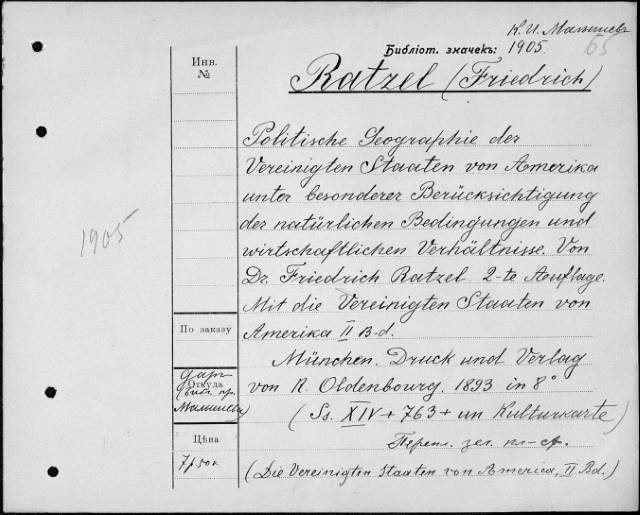 К. И. Малышевъ
Библіот. значекъ: 1905.
65
Инв.
№
Ratzel (Friedrich)
Politische Geographie der
Vereinigten Staaten von Amerika
unter besonderer Berücksichtigung
der natürlichen Bedingungen und
wirtschaftlichen Verhältnisse. Von
Dr. Friedrich Ratzel. 2-te Auflage.
Mit die Vereinigten Staaten von
Amerika II B-d.
München. Druck und Verlag
von R. Oldenbourg. 1893 in 8°
(Ss. XIV + 763 + un Kulturkarte)
Перепл. зел. пл-ср.
(Die Vereinigten Staaten von America, II Bd.)
1905
По заказу
даръ
Откуда
(библ. пр.
Малышева)
Цѣна
7 р. 50 к.